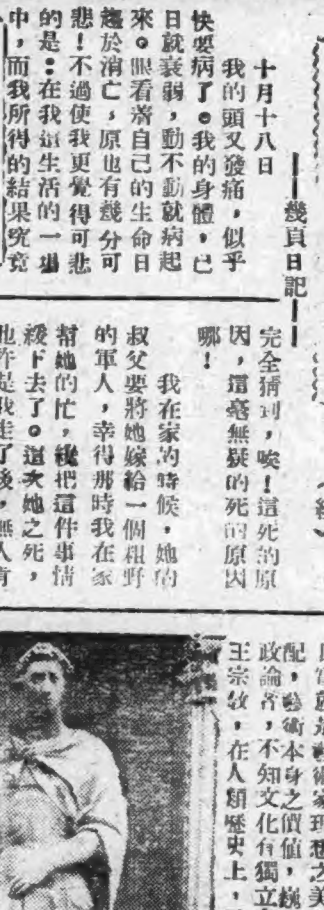 ——幾頁日記——
十月十八日
我的頭又發痛，似乎
快要病了。我的身體，已
日就衰弱，動不動就病起
來。眼看着自己的生命日
趨於消亡，原也有幾分可
悲！不過使我更覺得可悲
的是：在我這生活的一場
中，而我所得的結果究竟
完全猜到，唉！這死的原
因，這毫無疑的死的原因
哪！
我在家的時候，她的
叔父要將她嫁給一個粗野
的軍人，幸得那時我在家
幫她的忙，纔把這件事情
緩下去了。這次她之死，
也許是我走了後，無人肯
配，藝術本身之價值，巍
政論者，不知文化有獨立
王宗教，在人類歷史上，